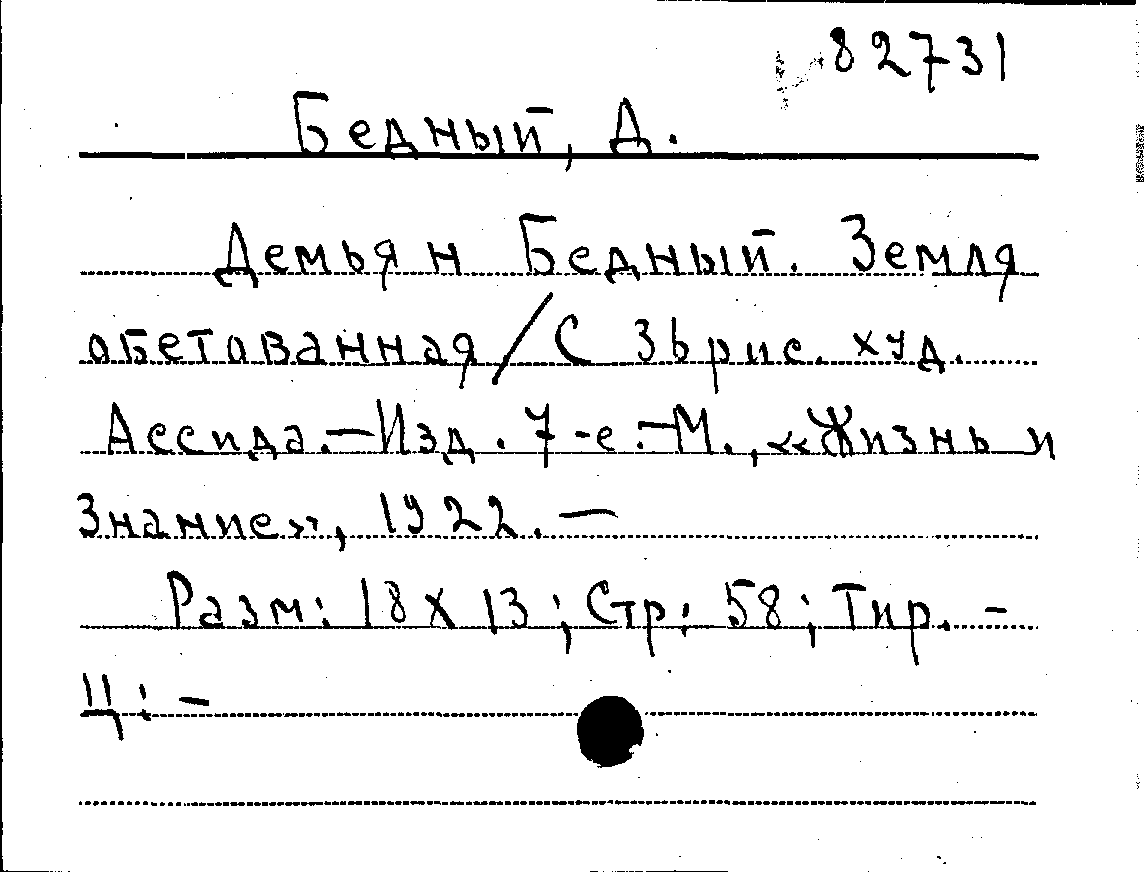 82731
Бедный, Д.
Демьян Бедный. Земля
обетованная / С 36 рис. худ.
Ассида. — Изд. 7-е. — М., «Жизнь и
Знание», 1922. —
Разм: 18 х 13; Стр: 58; Тир. -
Ц: -